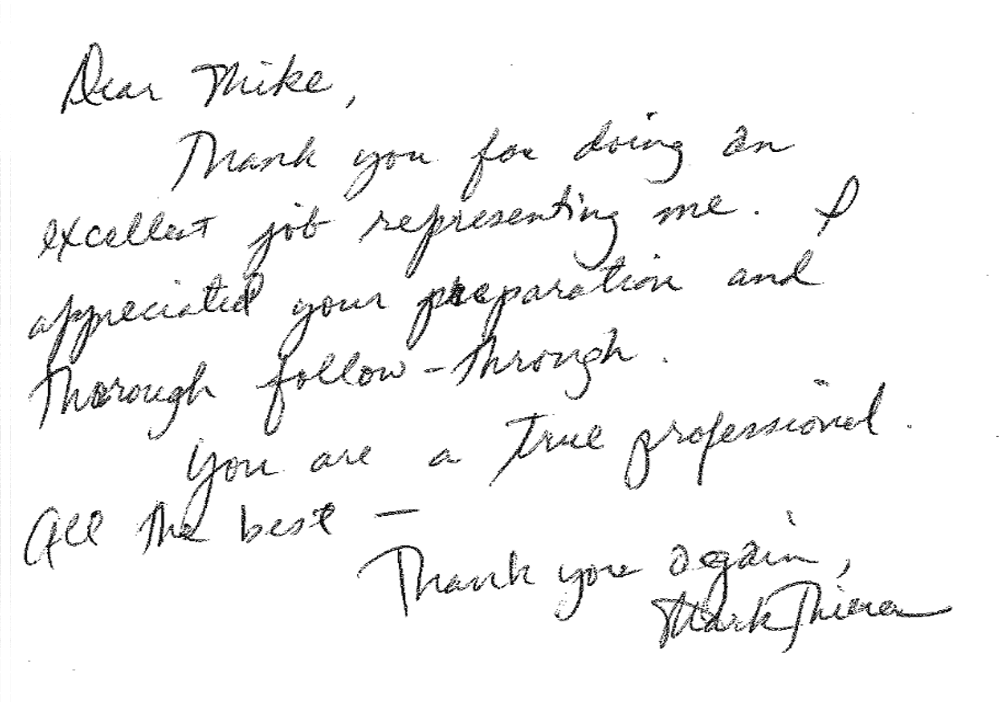 Dear Mike,
Thank you for doing an
excellent job representing me. I
appreciated your preparation and
thorough follow-through.
You are a true professional.
All the best —
Thank you again,
Mark